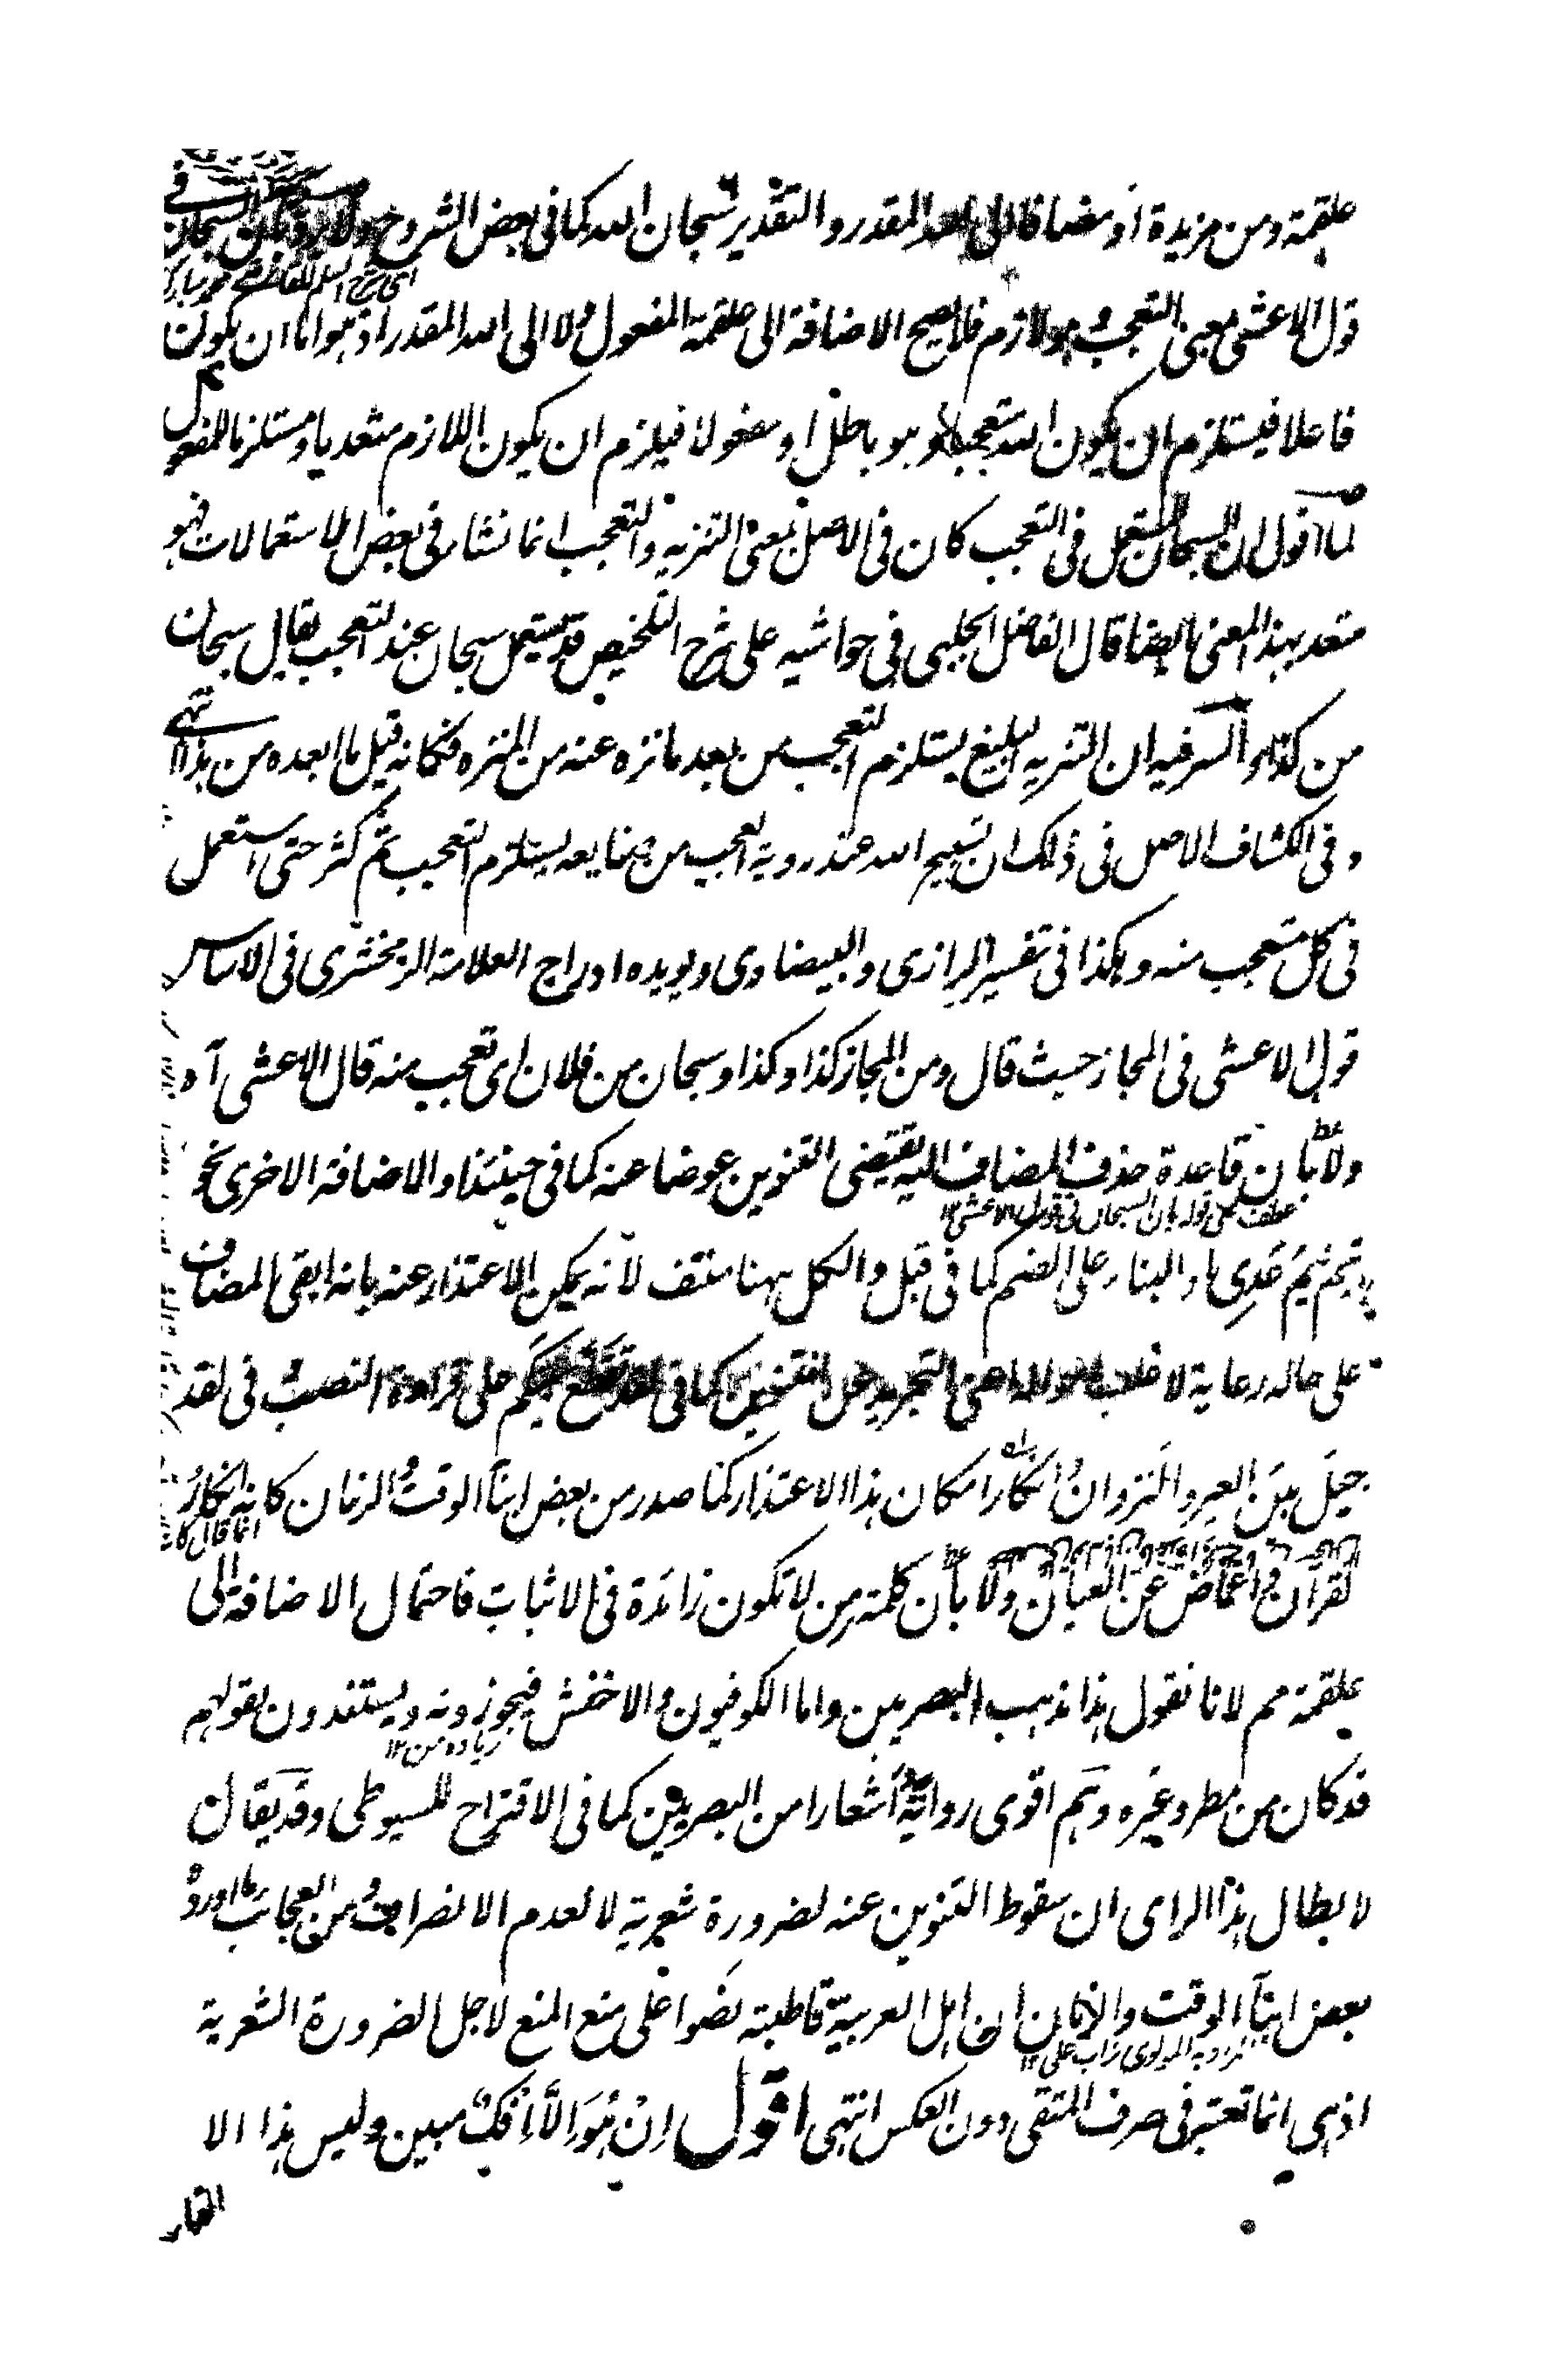 علقمة ومن مزيدة او مضافا الى الله المقدر والتقدير سبحان الله كما فى بعض الشروح ولا يرد بان سبحان فى
قول الاعشى بمعنى التعجب وهو لازم فلا يصح الاضافة الى علقمة المفعول ولا الى الله المقدر اذ هو اما ان يكون
فاعلا فيستلزم ان يكون الله متعجبا وهو باطل او مفعولا فيلزم ان يكون اللازم متعديا ومستلزما للمفعول
لما اقول ان السبحان المستعمل فى التعجب كان فى الاصل بمعنى التنزيه والتعجب انما نشأ فى بعض الاستعمالات فهو
متعد بهذا المعنى ايضا قال الفاضل الجلبى فى حواشيه على شرح التلخيص قد يستعمل سبحان عند التعجب يقال سبحان
من كذا والسر فيه ان التنزيه البليغ يستلزم التعجب من بعد ما نزه عنه من المنزه فكانه قيل ما ابعده من هذا انتهى
وفى الكشاف الاصل فى ذلك ان تسبيح الله عند روية العجب من صنايعه يستلزم التعجب ثم كثر حتى استعمل
فى كل متعجب منه وهكذا فى تفسير الرازى والبيضاوى ويويده ادراج العلامة الزمخشرى فى الاساس
قول الاعشى فى المجاز حيث قال ومن المجاز كذا وكذا وسبحان من فلان اى تعجب منه قال الاعشى آه
ولا بان قاعدة حذف المضاف اليه يقتضى التنوين عوضا عنه كما فى حينئذ او الاضافة الاخرى نحو
عطف على قوله بان السبحان فى قول الاعشى ١٢
تيم تيم عدى او البناء على الضم كما فى قبل والكل ههنا منتف لانه يمكن الاعتذار عنه بانه ابقى المضاف
على حاله رعاية لا اعنى التجريد عن التنوين كما فى لقد تقطع بينكم على قراءة النصب فى لقد
حيل بين العير والنزوان انكار امكان هذا الاعتذار كما صدر من بعض ابناء الوقت والزمان كانه انكار
لقرآن واغماض عن العيان ولا بان كلمة من لا تكون زائدة فى الاثبات فاحتمال الاضافة الى
علقمة مم لانا نقول هذا مذهب البصريين واما الكوفيون والاخفش فيجوزونه ويستندون بقولهم
زيادة من ١٢
قد كان من مطر وغيره وهم اقوى رواية اشعارا من البصريين كما فى الاقتراح للسيوطى وقد يقال
لابطال هذا الراى ان سقوط التنوين عنه لضرورة شعرية لا لعدم الانصراف ومن العجائب ما اورده
بعض ابناء الوقت والزمان ان اهل العربية قاطبة نصوا على منع المنع لاجل الضرورة الشعرية
اذ هى انما تعتبر فى صرف المتقى دون العكس انتهى اقول ان هو الا افك مبين وليس هذا الا